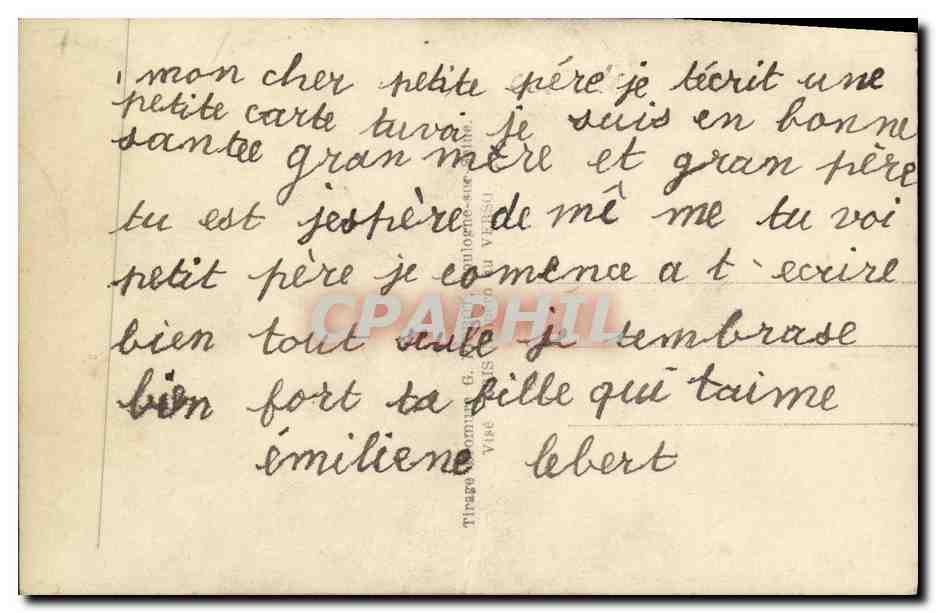 mon cher petite père je técrit une
petite carte tu voi je suis en bonne
santee gran mère et gran père
tu est jespère de mê me tu voi
petit père je comence a t ecrire
bien tout seule je tembrase
bien fort ta fille qui taime
émiliene lebert
CPAPHIL
Tirage
Visé VERSO